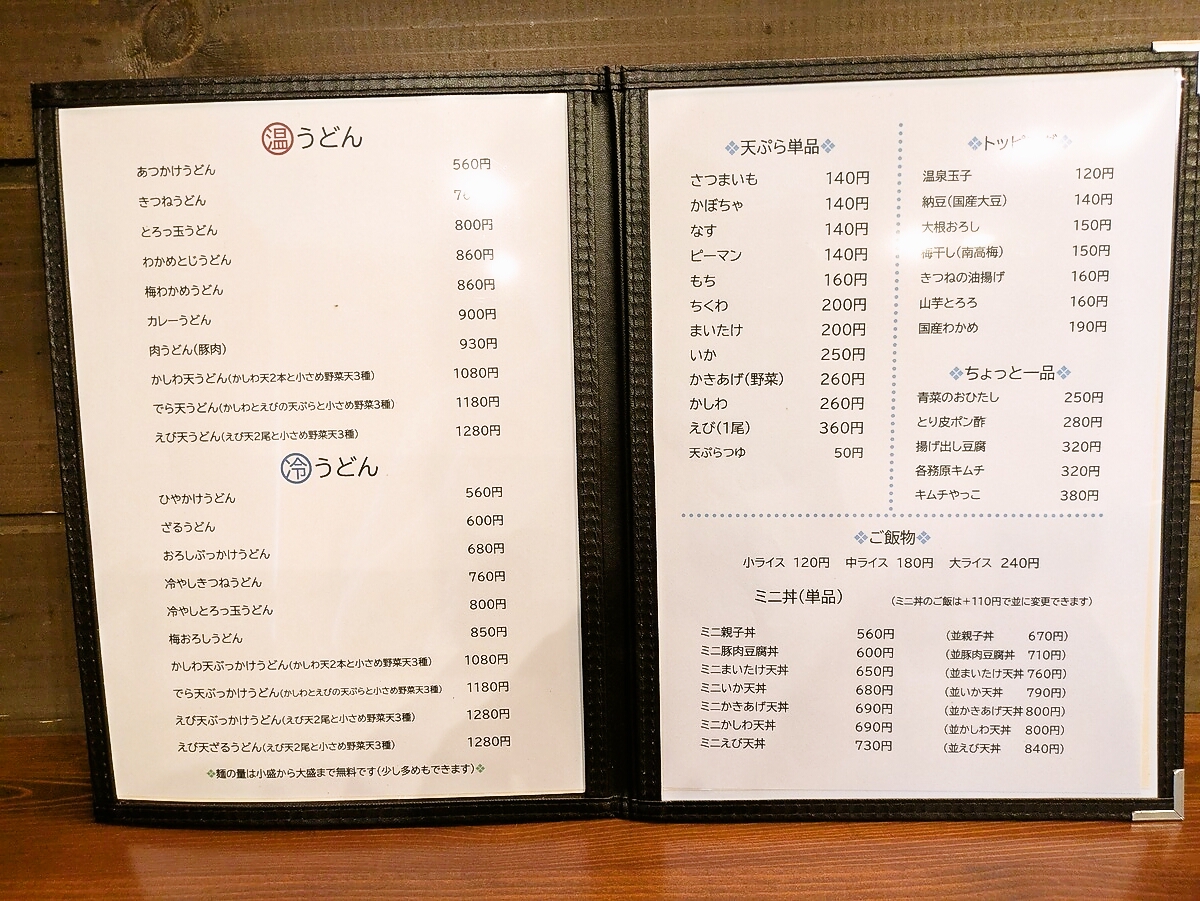 温うどん
あつかけうどん 560円
きつねうどん
とろっ玉うどん 800円
わかめとじうどん 860円
梅わかめうどん 860円
カレーうどん 900円
肉うどん(豚肉) 930円
かしわ天うどん(かしわ天2本と小さめ野菜天3種) 1080円
でら天うどん(かしわとえびの天ぷらと小さめ野菜3種) 1180円
えび天うどん(えび天2尾と小さめ野菜天3種) 1280円
冷うどん
ひやかけうどん 560円
ざるうどん 600円
おろしぶっかけうどん 680円
冷やしきつねうどん 760円
冷やしとろっ玉うどん 800円
梅おろしうどん 850円
かしわ天ぶっかけうどん(かしわ天2本と小さめ野菜天3種) 1080円
でら天ぶっかけうどん(かしわとえびの天ぷらと小さめ野菜3種) 1180円
えび天ぶっかけうどん(えび天2尾と小さめ野菜天3種) 1280円
えび天ざるうどん(えび天2尾と小さめ野菜天3種) 1280円
麺の量は小盛から大盛まで無料です(少し多めもできます)
天ぷら単品
さつまいも 140円
かぼちゃ 140円
なす 140円
ピーマン 140円
もち 160円
ちくわ 200円
まいたけ 200円
いか 250円
かきあげ(野菜) 260円
かしわ 260円
えび(1尾) 360円
天ぷらつゆ 50円
トッピング
温泉玉子 120円
納豆(国産大豆) 140円
大根おろし 150円
梅干し(南高梅) 150円
きつねの油揚げ 160円
山芋とろろ 160円
国産わかめ 190円
ちょっと一品
青菜のおひたし 250円
とり皮ポン酢 280円
揚げ出し豆腐 320円
各務原キムチ 320円
キムチやっこ 380円
ご飯物
小ライス 120円 中ライス 180円 大ライス 240円
ミニ丼(単品) (ミニ丼のご飯は+110円で並に変更できます)
ミニ親子丼 560円 (並親子丼 670円)
ミニ豚肉豆腐丼 600円 (並豚肉豆腐丼 710円)
ミニまいたけ天丼 650円 (並まいたけ天丼 760円)
ミニいか天丼 680円 (並いか天丼 790円)
ミニかきあげ天丼 690円 (並かきあげ天丼 800円)
ミニかしわ天丼 690円 (並かしわ天丼 800円)
ミニえび天丼 730円 (並えび天丼 840円)